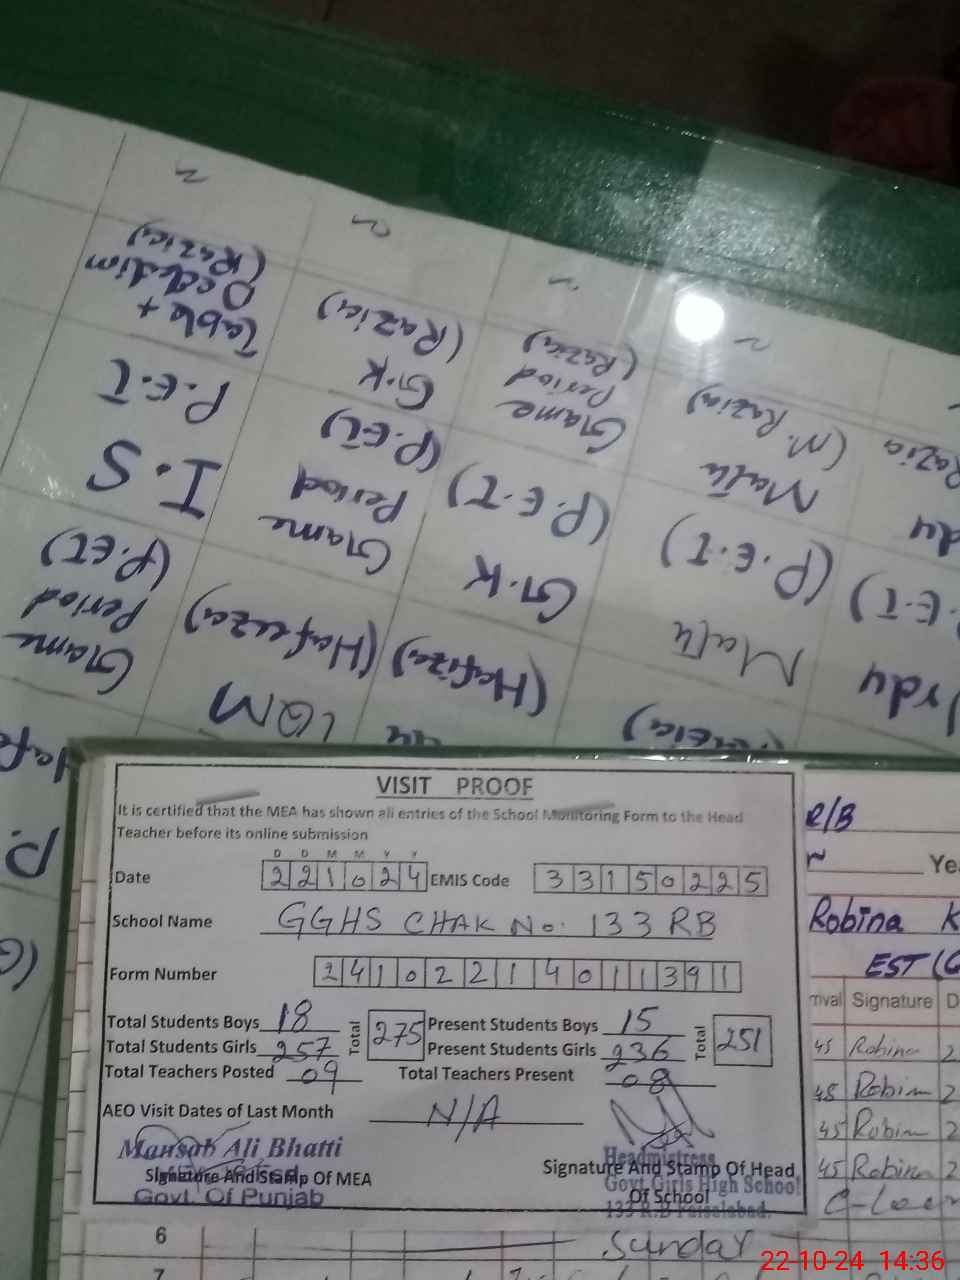 ~
~
~
~
Table +
Dictation
(Razia)
G.K
(Razia)
Game
Period
(Razia)
Math
(M. Razia)
Razia
P.E.T
Game
Period
(P.ET)
G.K
(P.E.T)
Math
(P.E.T)
I.S
(Hafeeza)
(Hafiza)
Game
Period
(P.ET)
VISIT PROOF
It is certified that the MEA has shown all entries of the School Monitoring Form to the Head
Teacher before its online submission
D D M M Y Y
Date 221024 EMIS Code 33150225
School Name GGHS CHAK No. 133 RB
Form Number 24102214011391
Total Students Boys 18 Total 275 Present Students Boys 15 Total 251
Total Students Girls 257 Present Students Girls 236
Total Teachers Posted 09 Total Teachers Present 08
AEO Visit Dates of Last Month N/A
Mansab Ali Bhatti
Signature And Stamp Of MEA
Govt. Of Punjab
Headmistress
Signature And Stamp Of Head
Govt Girls High School
Of School
133 R.B Faisalabad.
R/B
Ye
Robina K
EST (
rival Signature D
45 Robina 2
45 Robina 2
45 Robina 2
45 Robina 2
6 Sunday
7
22-10-24 14:36